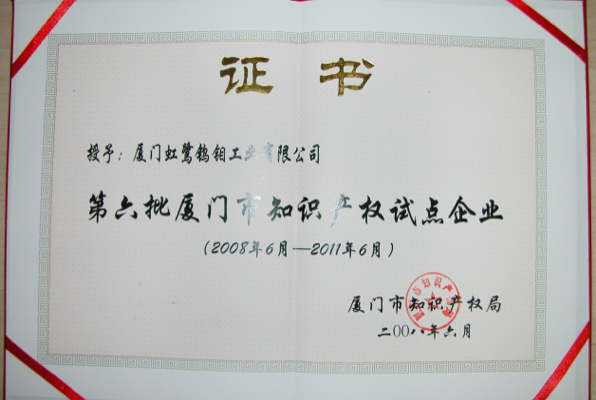 证书
授予：厦门虹鹭钨钼工业有限公司
第六批厦门市知识产权试点企业
（2008年6月—2011年6月）
厦门市知识产权局
二〇〇八年六月